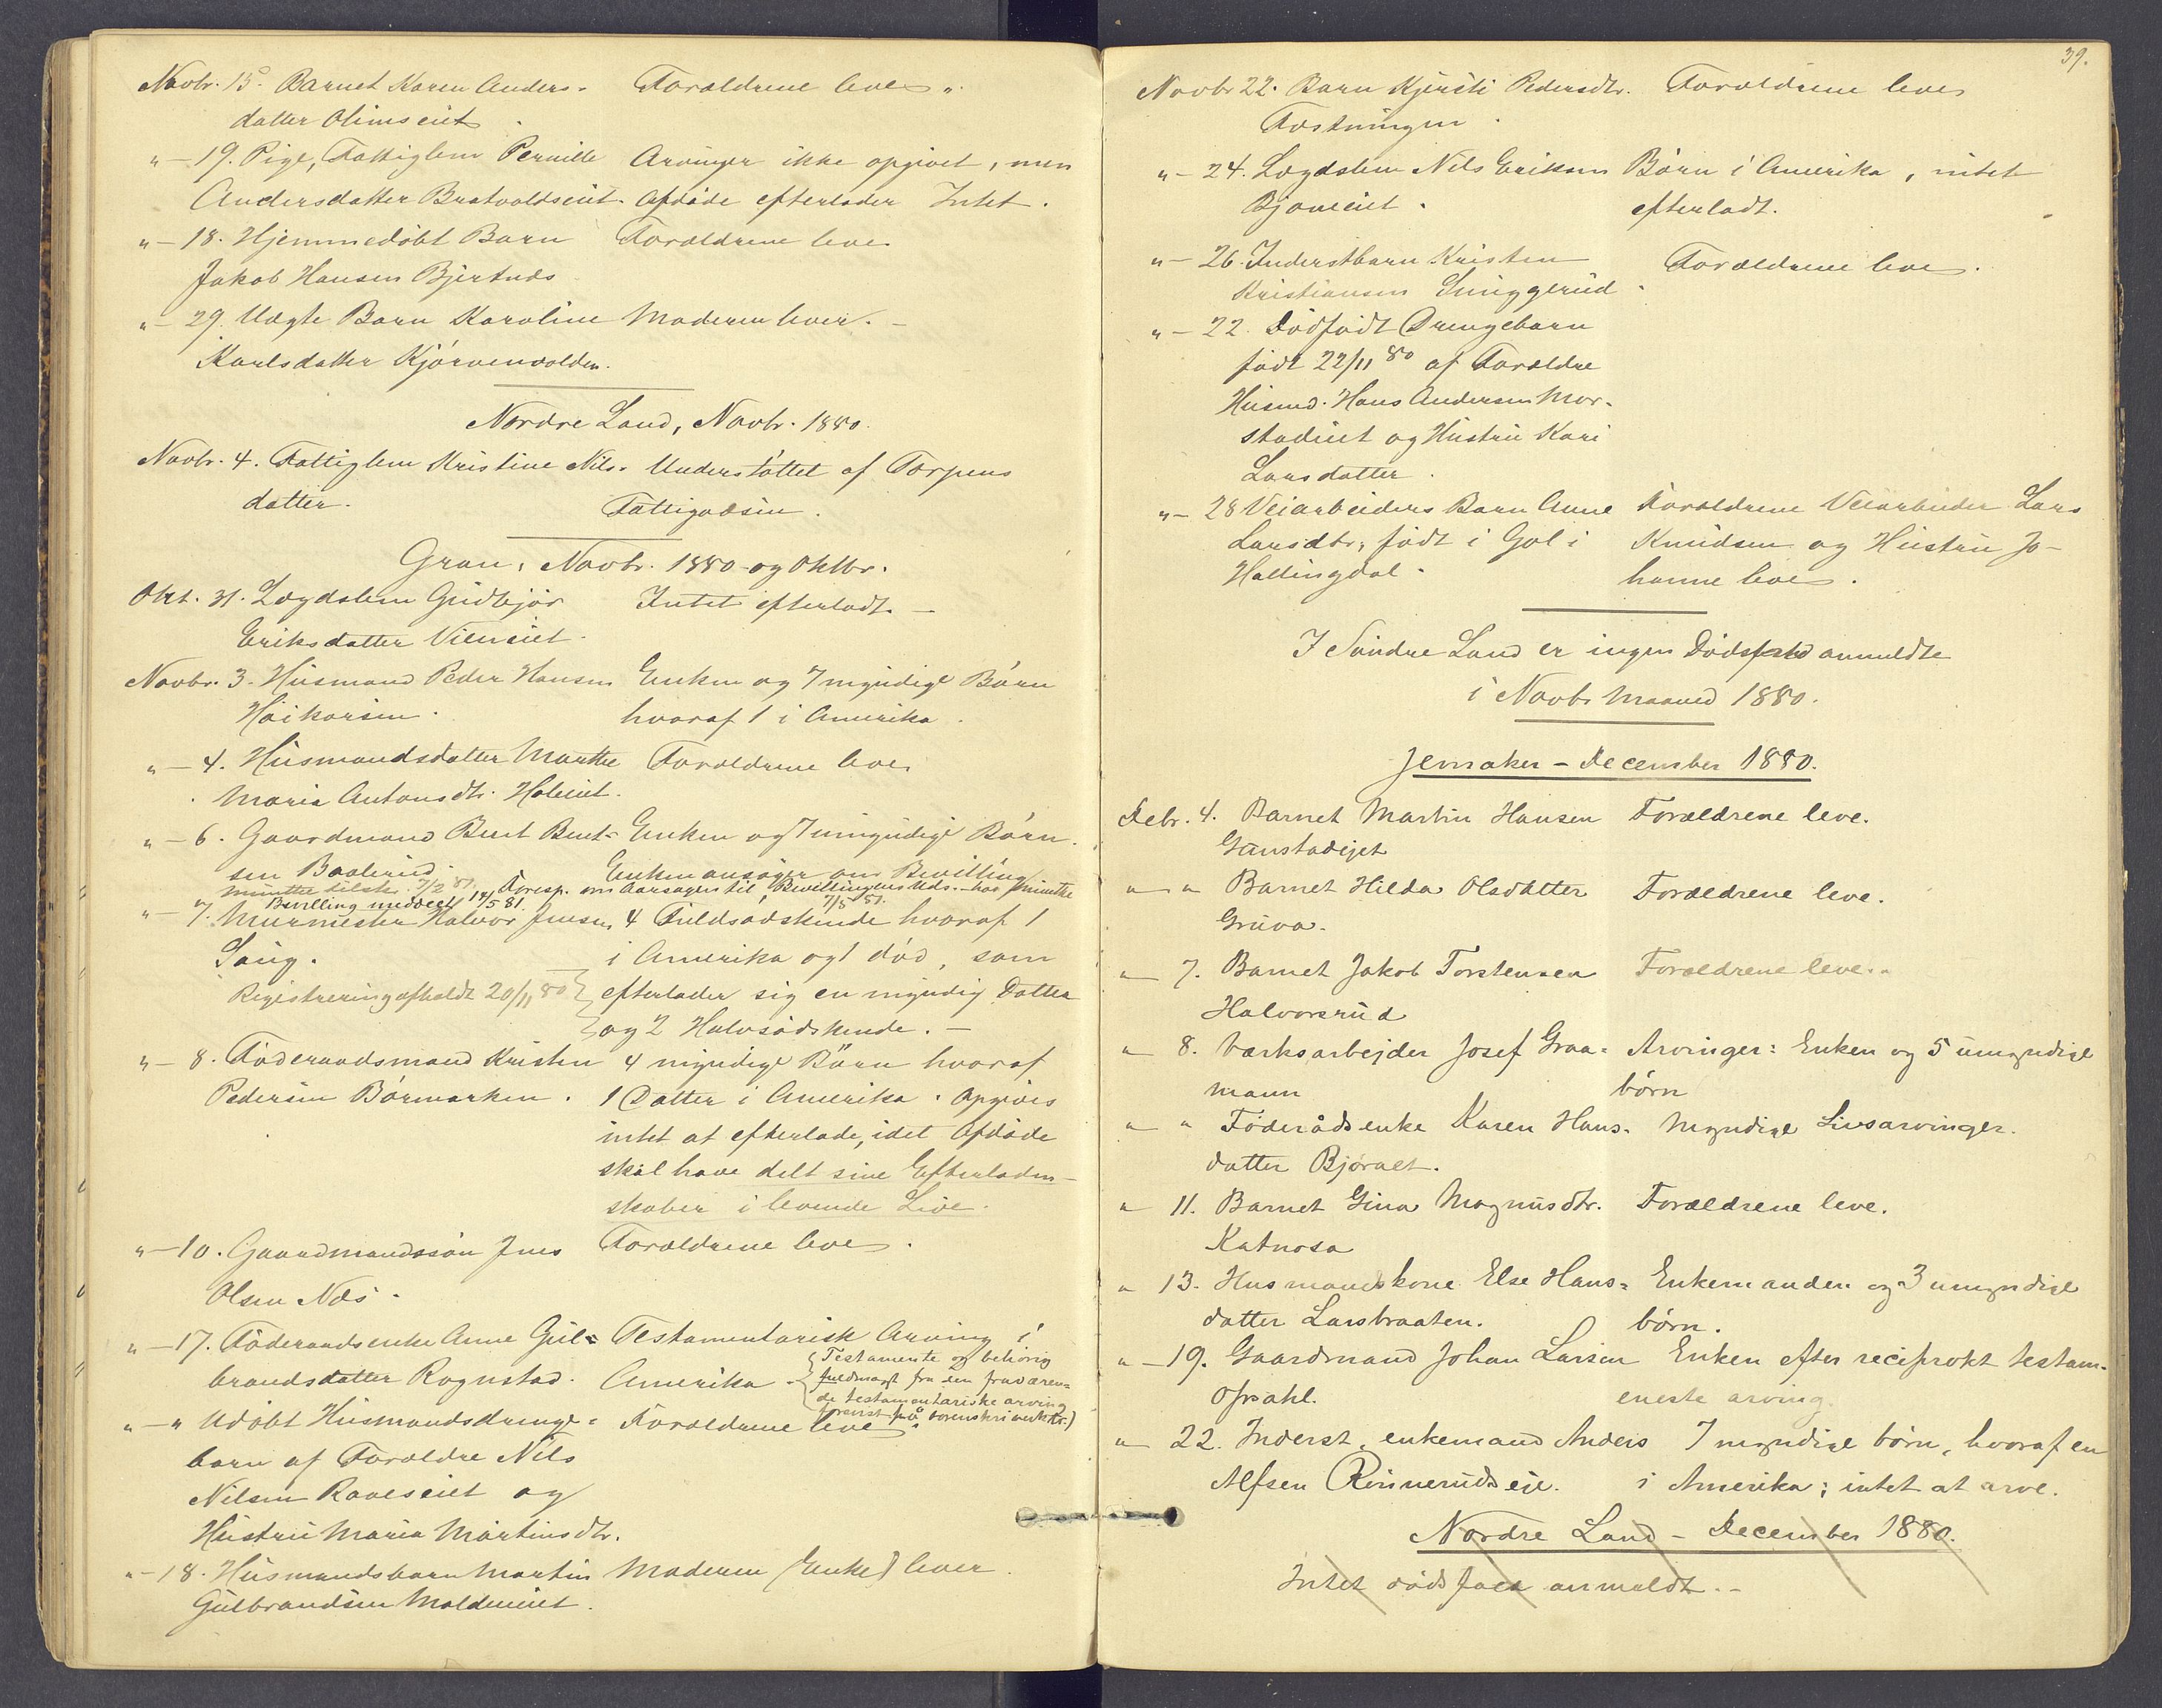 Novbr. 15. Barnet Karen Anders- Forældrene leve ".
datter Olimseiet.
" - 19. Pige, Fattiglem Pernille Arvinger ikke opgivet, men
Andersdatter Bratvoldseiet. Afdøde efterlader Intet.
" - 18. Hjemmedøbt Barn Forældrene leve
Jakob Hansen Bjertnes
" - 29. Uægte Barn Karoline Moderen lever. -
Karlsdatter Kjørvenvolden.
Nordre Land, Novbr. 1880.
Novbr. 4. Fattiglem Kristine Nils- Understøttet af Torpens
datter. Fattigvæsen.
Gran, Novbr. 1880 og Oktbr.
Okt. 31. Lægdslem Gudbjør Intet efterladt. -
Eriksdatter Vieneiet.
Novbr. 3. Husmand Peder Hansen Enken og 7 myndige Børn
Høikorsen. hvoraf 1 i Amerika.
" - 4. Husmandsdatter Marthe Forældrene leve
Maria Antonsdtr. Holeiet.
" - 6. Gaardmand Bent Bent- Enken og 7 umyndige Børn.
sen Baalerud. Enken ansøger om Bevilling
7/2 81. Foresp. om Aarsagen til Bevillingens Uds.
Bevilling meddelt 14/5 81. 7/5 81.
" - 7. Murmester Halvor Jensen 4 Fuldsødskende hvoraf 1
Saug. i Amerika og 1 død, som
Registrering afholdt 20/11 80 efterlader sig en myndig Datter
og 2 Halvsødskende. -
" - 8. Føderaadsmand Kristen 4 myndige Børn hvoraf
Pedersen Børmarken. 1 Datter i Amerika. Opgives
intet at efterlade, idet Afdøde
skal have delt sine Efterladen-
skaber i levende Live.
" - 10. Gaardmandssøn Jens Forældrene leve.
Olsen Næs.
" - 17. Føderaadsenke Anne Gul= Testamentarisk Arving i
brandsdatter Rognstad. Amerika. - {Testamente og behørig
fuldmagt fra den fraværen=
de testamentariske arving
forevist på sorenskriverktr.)
" - " Udøbt Husmandsdrenge= Forældrene leve.
barn af Forældre Nils
Nilsen Raaeseiet og
Hustru Maria Martinsdtr.
" - 18. Husmandsbarn Martin Moderen (Enke) lever.
Gulbrandsen Moldeneiet.
39.
Novbr 22. Barn Kjersti Pedersdtr. Forældrene leve
Fostningen.
" - 24. Lægdslem Nils Eriksen Børn i Amerika, intet
Bjoneeiet. efterladt.
" - 26. Inderstbarn Kristen Forældrene leve.
Kristiansen Sniggerud.
" - 22. Dødfødt Drengebarn
født 22/11 80 af Forældre
Husmd. Hans Andersen Mor-
stadeiet og Hustru Kari
Larsdatter.
" - 28 Veiarbeiders Barn Anne Forældrene Veiarbeider Lars
Larsdtr, født i Gol i Knudsen og Hustru Jo-
Hallingdal. hanne leve.
I Søndre Land er ingen Dødsfald anmeldte
i Novbr Maaned 1880.
Jevnaker - December 1880.
Debr. 4. Barnet Martin Hansen Forældrene leve.
Gunstadejet
" " Barnet Hilda Olsdatter Forældrene leve.
Gruva.
" 7. Barnet Jakob Torstensen Forældrene leve. "
Halvorsrud
" 8. Værksarbejder Josef Graa= Arvinger: Enken og 5 umyndige
mann børn
" " Føderådsenke Karen Hans- Myndige Livsarvinger.
datter Bjøralt.
" 11. Barnet Gina Magnusdtr. Forældrene leve.
Katnosa
" 13. Husmandskone Else Hans= Enkemanden og 3 umyndige
datter Larsbraaten. børn.
" - 19. Gaardmand Johan Larsen Enken efter reciprokt testam.
Opsahl. eneste arving.
" 22. Inderst, enkemand Anders 7 myndige børn, hvoraf en
Alfsen Rinnerudseje. i Amerika; intet at arve.
Nordre Land - December 1880.
Intet dødsfald anmeldt. -